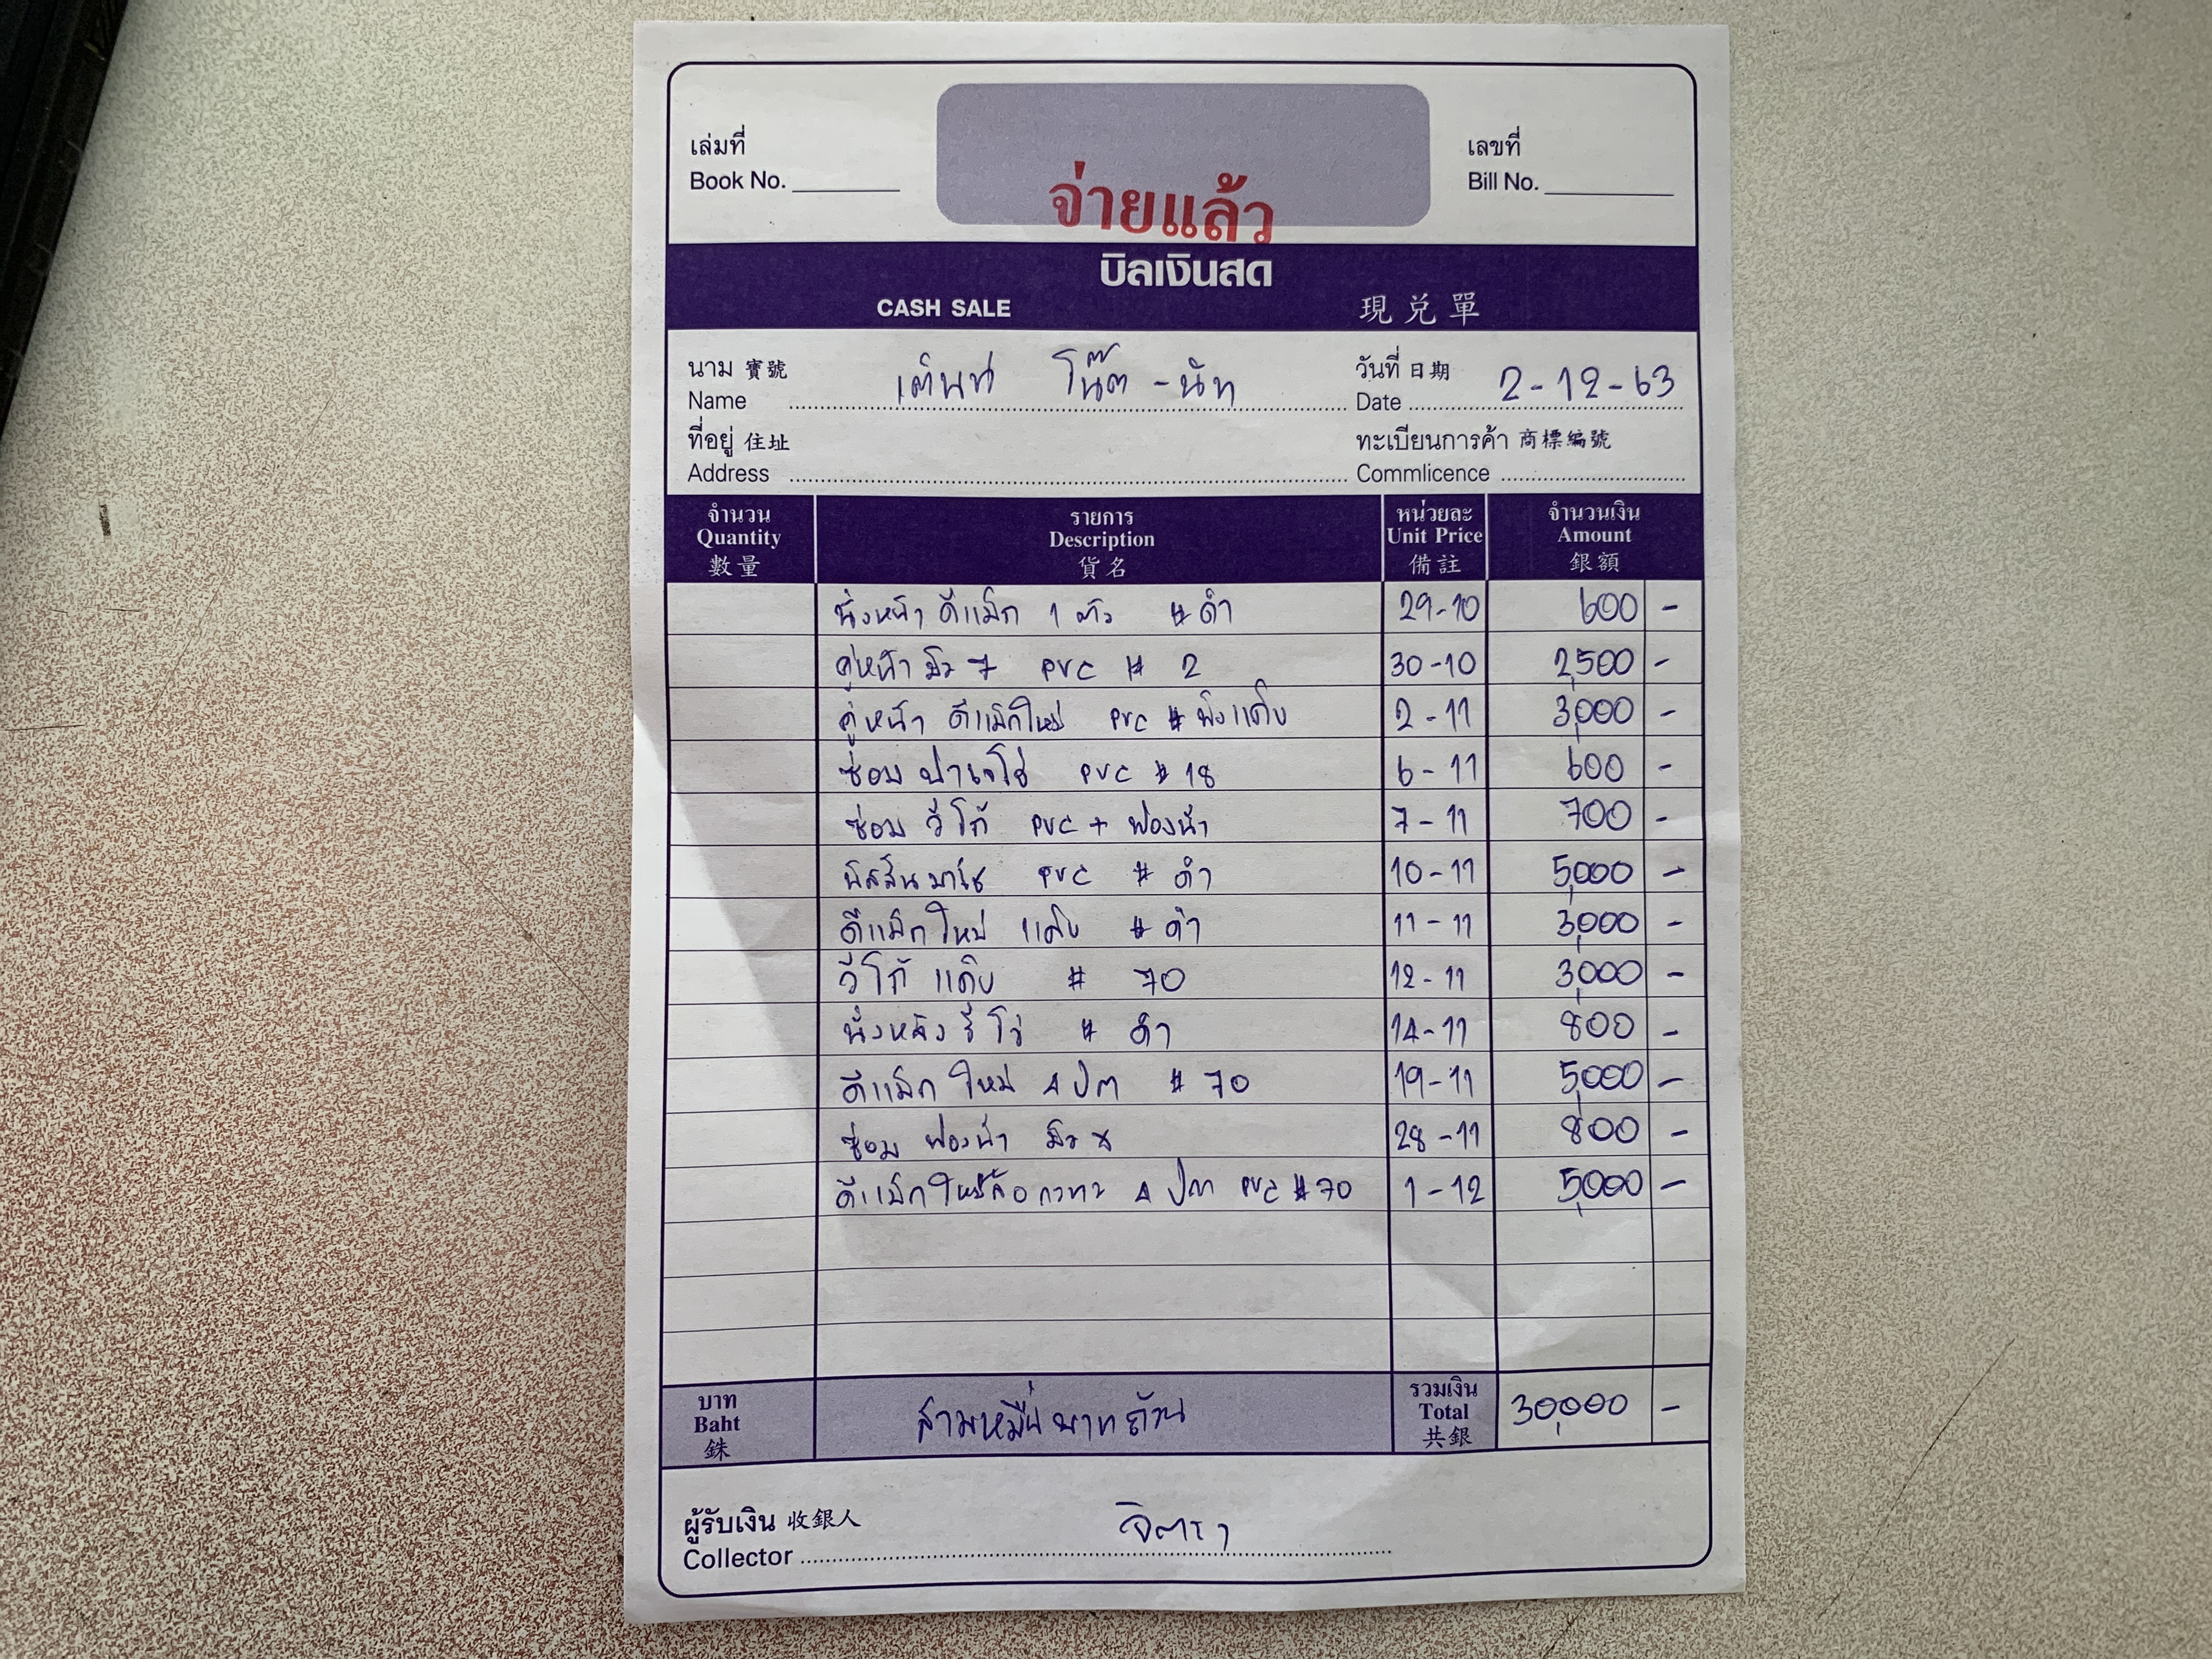 เล่มที่
Book No.
เลขที่
Bill No.
จ่ายแล้ว
บิลเงินสด
CASH SALE 現兑單
นาม 寶號
Name เต็นท์ โน๊ต - นัท
วันที่ 日期
Date 2-12-63
ที่อยู่ 住址
Address
ทะเบียนการค้า 商標編號
Commlicence
จำนวน รายการ หน่วยละ จำนวนเงิน
Quantity Description Unit Price Amount
數量 貨名 備註 銀額
นั่งหน้า ดีแม็ก 1 ตัว # ดำ 29-10 600 -
คู่หน้า มิว 7 PVC # 2 30-10 2,500 -
คู่หน้า ดีแม็กใหม่ PVC # 3,000 -
ซ่อม ปาเจโร่ PVC # 18 6-11 600 -
ซ่อม วีโก้ PVC + ฟองน้ำ 7-11 700 -
นิสสัน มาร์ช PVC # ดำ 10-11 5,000 -
ดีแม็กใหม่ แค็บ # ดำ 11-11 3,000 -
วีโก้ แค็บ # 70 12-11 3,000 -
นั่งหลัง รีโว่ # ดำ 14-11 800 -
ดีแม็ก ใหม่ 4 ปต # 70 19-11 5,000 -
ซ่อม ฟองน้ำ มิว x 28-11 800 -
ดีแม็กใหม่ 4 ปต PVC # 70 1-12 5,000 -
บาท
Baht
銖
สามหมื่นบาทถ้วน
รวมเงิน
Total
共銀
30,000 -
ผู้รับเงิน 收銀人
Collector จิตรา